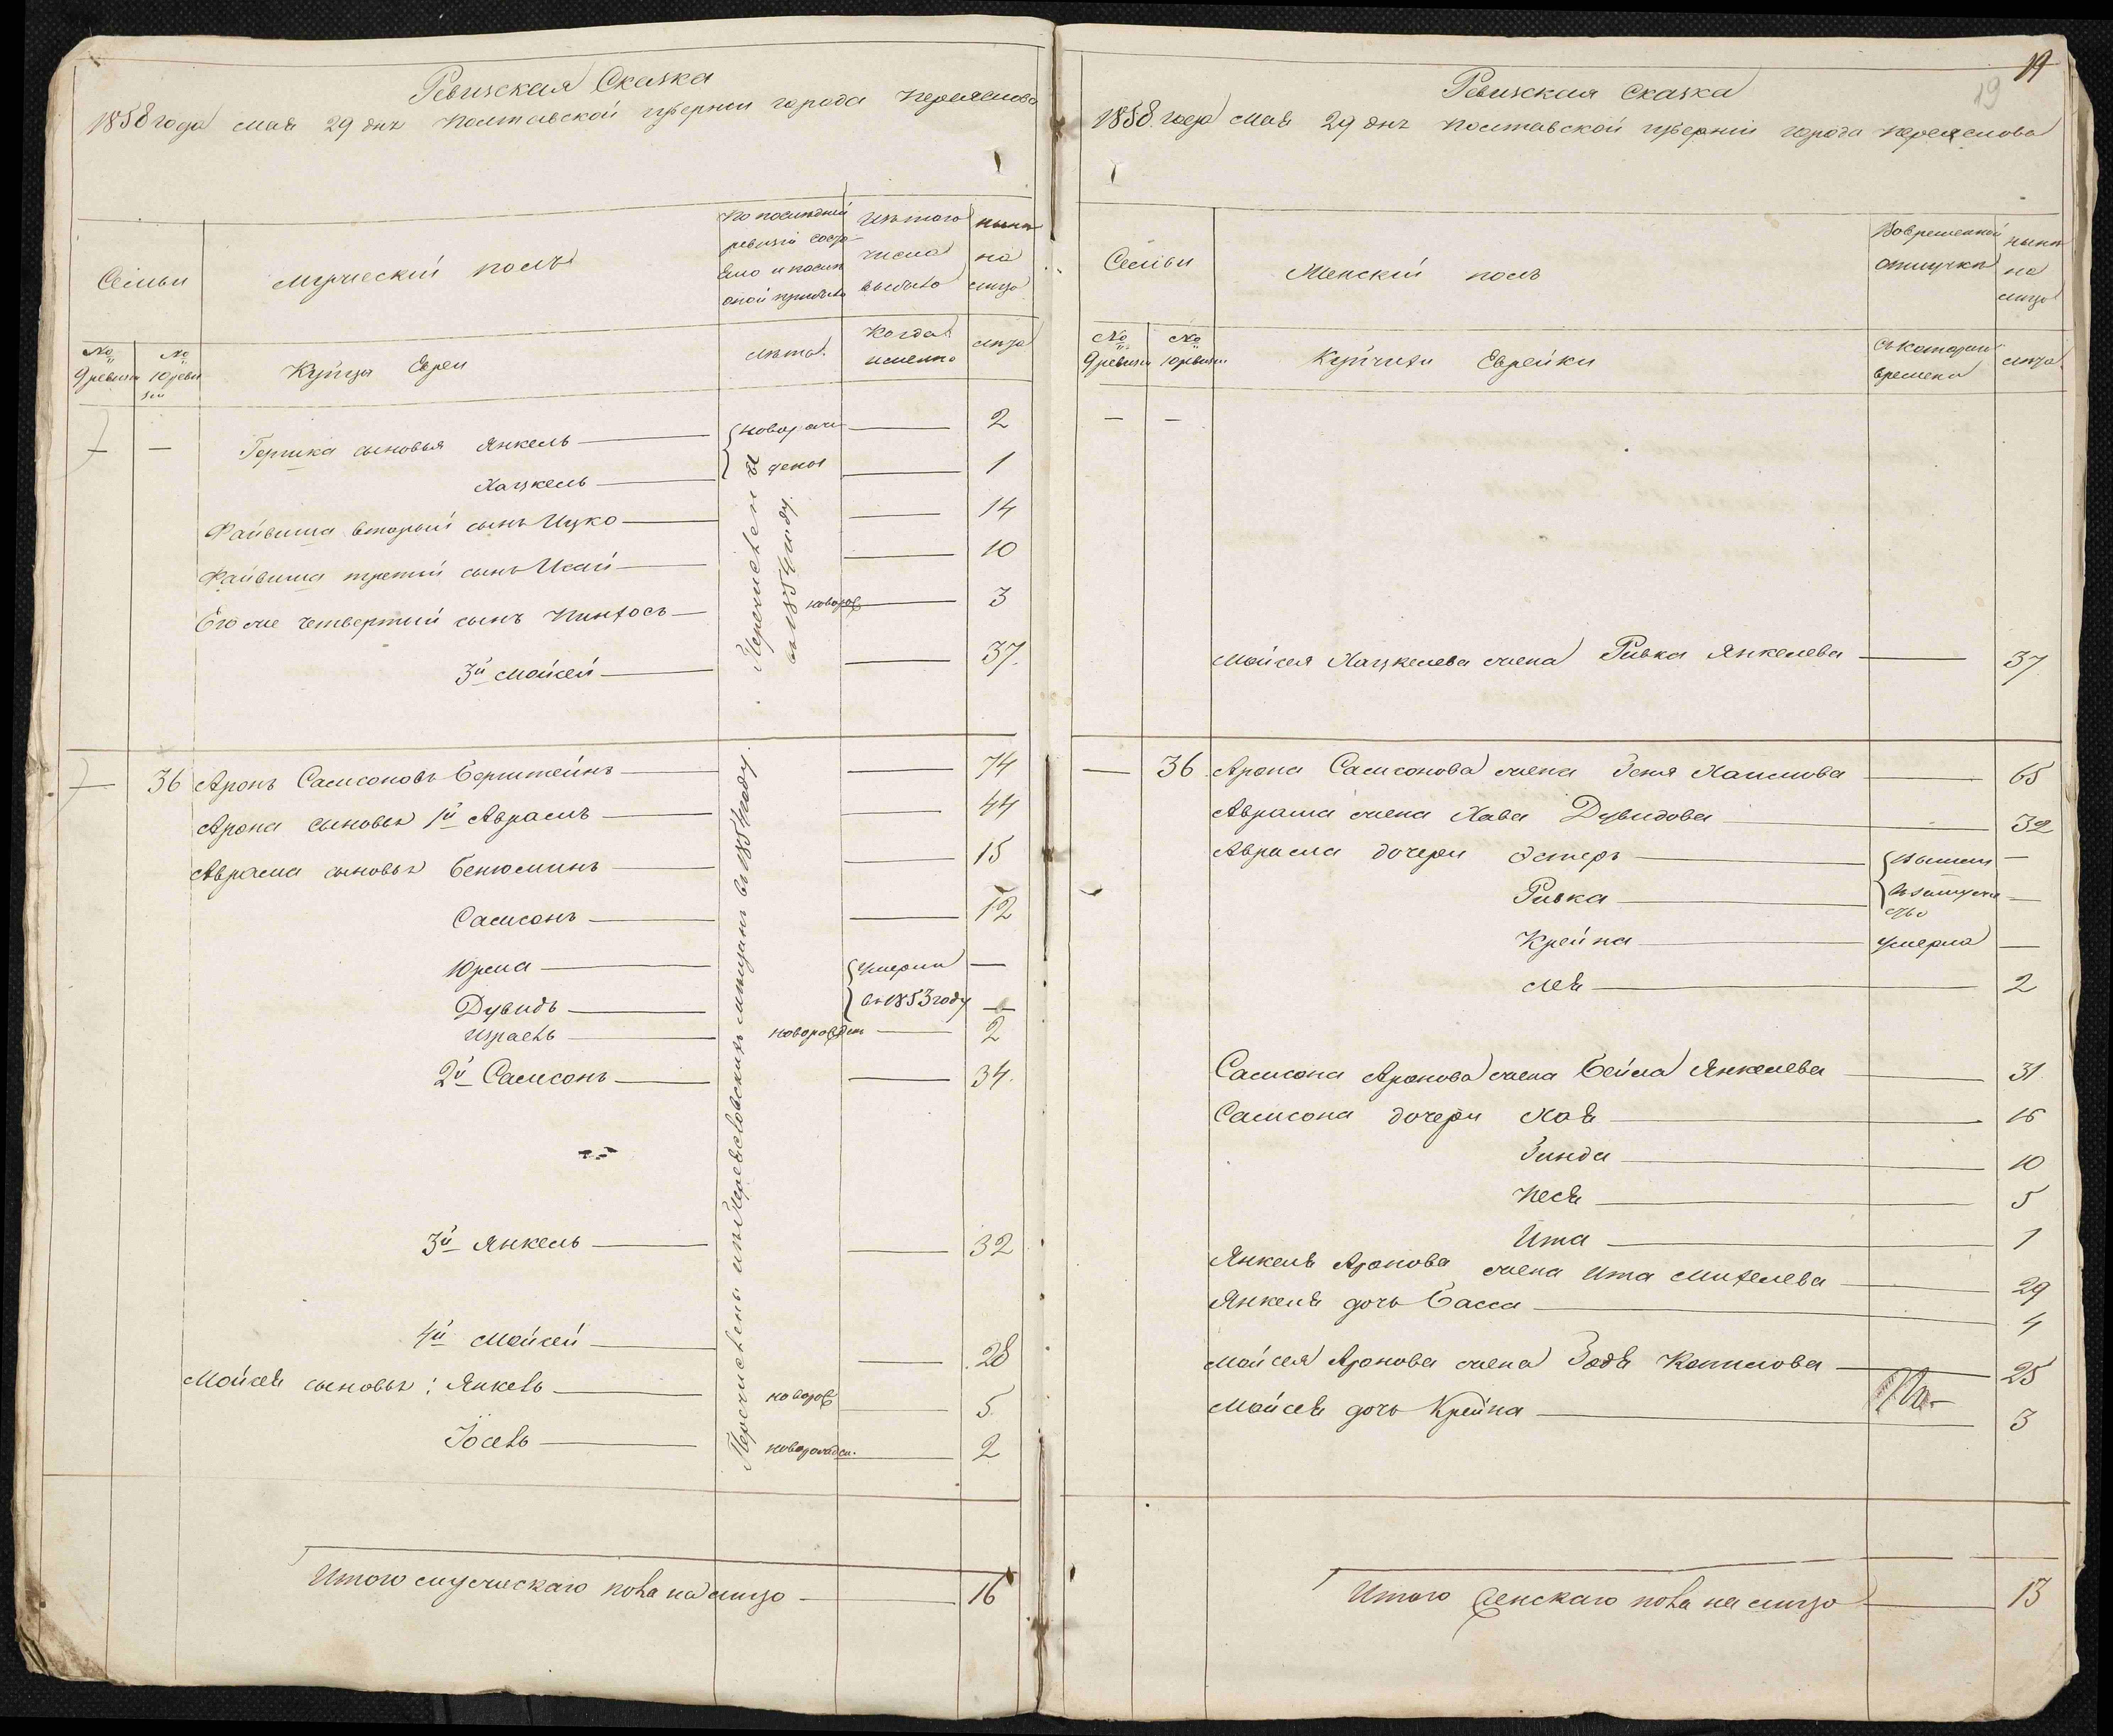 Ревизская Сказка
1858 года мая 29 дня Полтавской губернии города Переяслова
Семьи
Мужеский полъ
По последней ревизiи состояло и после оной прибыло
Изъ того числа выбыло
ныне на лицо
№ 9 ревизiи
№ 10 ревизiи
Купцы Евреи
лета.
Когда именно
лица
— — Гершка сыновья Янкель — новорож — 2
Хацкель — дены — 1
Файвиша вторый сынъ Ицко — 14
Файвиша третiй сынъ Исай — 10
Его же четвертый сынъ Пинхосъ — новорож — 3
3й Мойсей — 37.
Перечислены въ 1854 году.
— 36 Аронъ Самсоновъ Берштейнъ — 74
Арона сыновья 1й Аврамъ — 44
Аврама сыновья Бенюминъ — 15
Самсонъ — 12
Юрма — Умерли —
Дувидъ — въ 1853 году —
Израель — новорожден — 2
2й Самсонъ — 34.
3й Янкель — 32
4й Мойсей — 28
Мойсея сыновья: Янкель — новорож — 5.
Iосель — новорожден. — 2
Перечислены изъ Переяславскихъ мещанъ въ 1854 году.
Итого мужескаго пола на лицо — 16
19
19
Ревизская Сказка
1858 года мая 29 дня Полтавской губернiи города Переяслова
Семьи
Женскiй полъ
Во временной отлучке
ныне на лицо
№ 9 ревизiи
№ 10 ревизiи
Купчихи Еврейки
Съ котораго времени
лица
— —
Мойсея Хацкелева жена Ривка Янкелева — 37
— 36 Арона Самсонова жена Зеня Хаимова — 65
Аврама жена Хава Дувидова — 32
Аврама дочери Эстеръ — Вышли —
Ривка — въ замужество —
Крейна — умерла —
Лея — 2
Самсона Аронова жена Бейла Янкелева — 31
Самсона дочери Хая — 15
Зинда — 10
Песя — 5
Ита — 1
Янкеля Аронова жена Ита Михелева — 29
Янкеля дочь Басса — 4
Мойсея Аронова жена Зодя Копилова — 25
Мойсея дочь Крейна — 3
Итого женскаго пола на лицо — 13